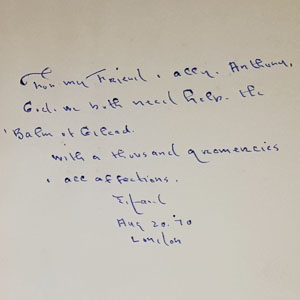 For my Friend & ally. Anthony.
God. we both need help. the
'Balm of Gilead.
with a thousand gramercies
& all affections.
Aug 20. '70
London